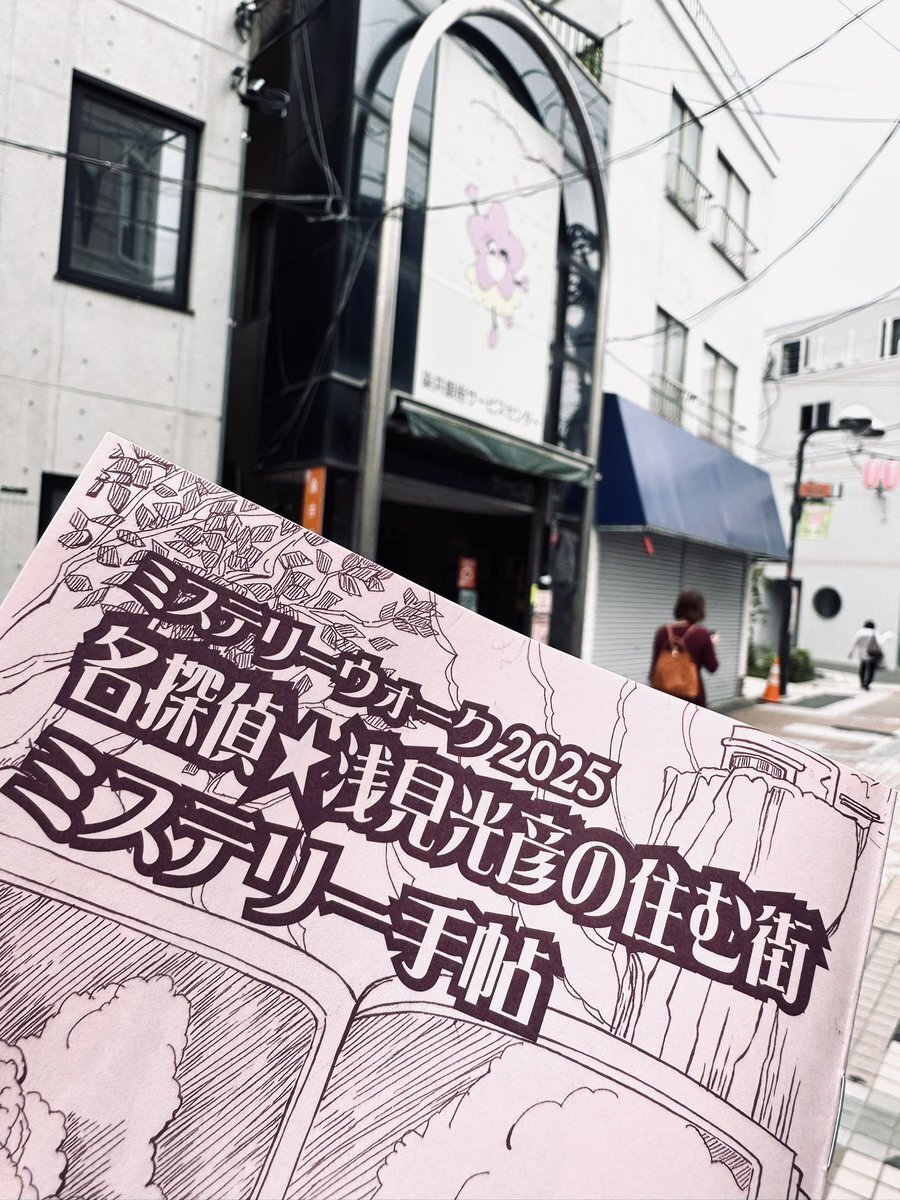 染井銀座サービスセンター
ミステリーウォーク2025
名探偵★浅見光彦の住む街
ミステリー手帖